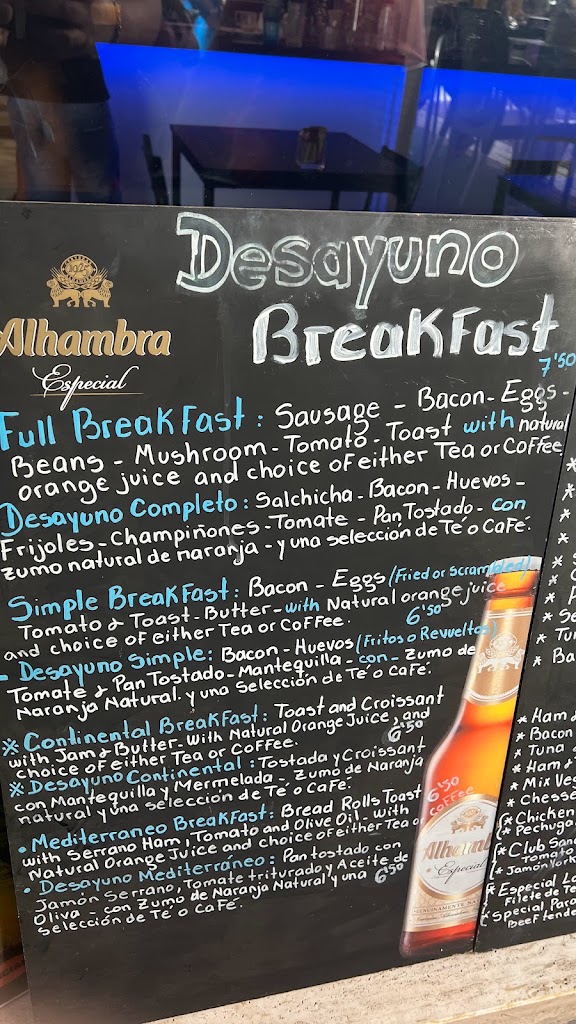 Desayuno
BreakFast
1925
Alhambra
Especial
7'50
Full BreakFast: Sausage - Bacon - Eggs -
Beans - Mushroom - Tomato - Toast with natural
orange juice and choice of either Tea or Coffee
Desayuno Completo: Salchicha - Bacon - Huevos -
Frijoles - Champiñones - Tomate - Pan Tostado - con
zumo natural de naranja - y una selección de Te´o Café.
Simple BreakFast: Bacon - Eggs (Fried or scrambled)
Tomato & Toast - Butter - with Natural orange juice
and choice of either Tea or Coffee. 6'50
- Desayuno Simple: Bacon - Huevos (Fritos o Revueltos)
Tomate & Pan Tostado - Mantequilla - con - zumo de
Naranja Natural. y una selección de Te´o café.
※ Continental BreakFast: Toast and Croissant
with Jam & Butter - with Natural Orange Juice, and
choice of either Tea or Coffee. 6'50
※ Desayuno Continental: Tostada y Croissant
con Mantequilla y Mermelada - Zumo de Naranja
natural y una selección de Te´o Café.
• Mediterraneo BreakFast: Bread Rolls Toast
with Serrano Ham, Tomato and Olive Oil - with
Natural Orange Juice and choice of either Tea or
coffee 6'50
• Desayuno Mediterráneo: Pan tostado con
Jamón Serrano, Tomate triturado y Aceite de
Oliva - con Zumo de Naranja Natural y una 6'50
selección de Te´o Café.
Alhamb
Especial
* Ham &
* Bacon
* Tuna
* Ham &
* Mix Veg
* Chesse
* Chicken
* Pechuga
* Club San
Tomato
* Jamón York
* Especial Lo
Filete de Te
* Special Par
Beef tende